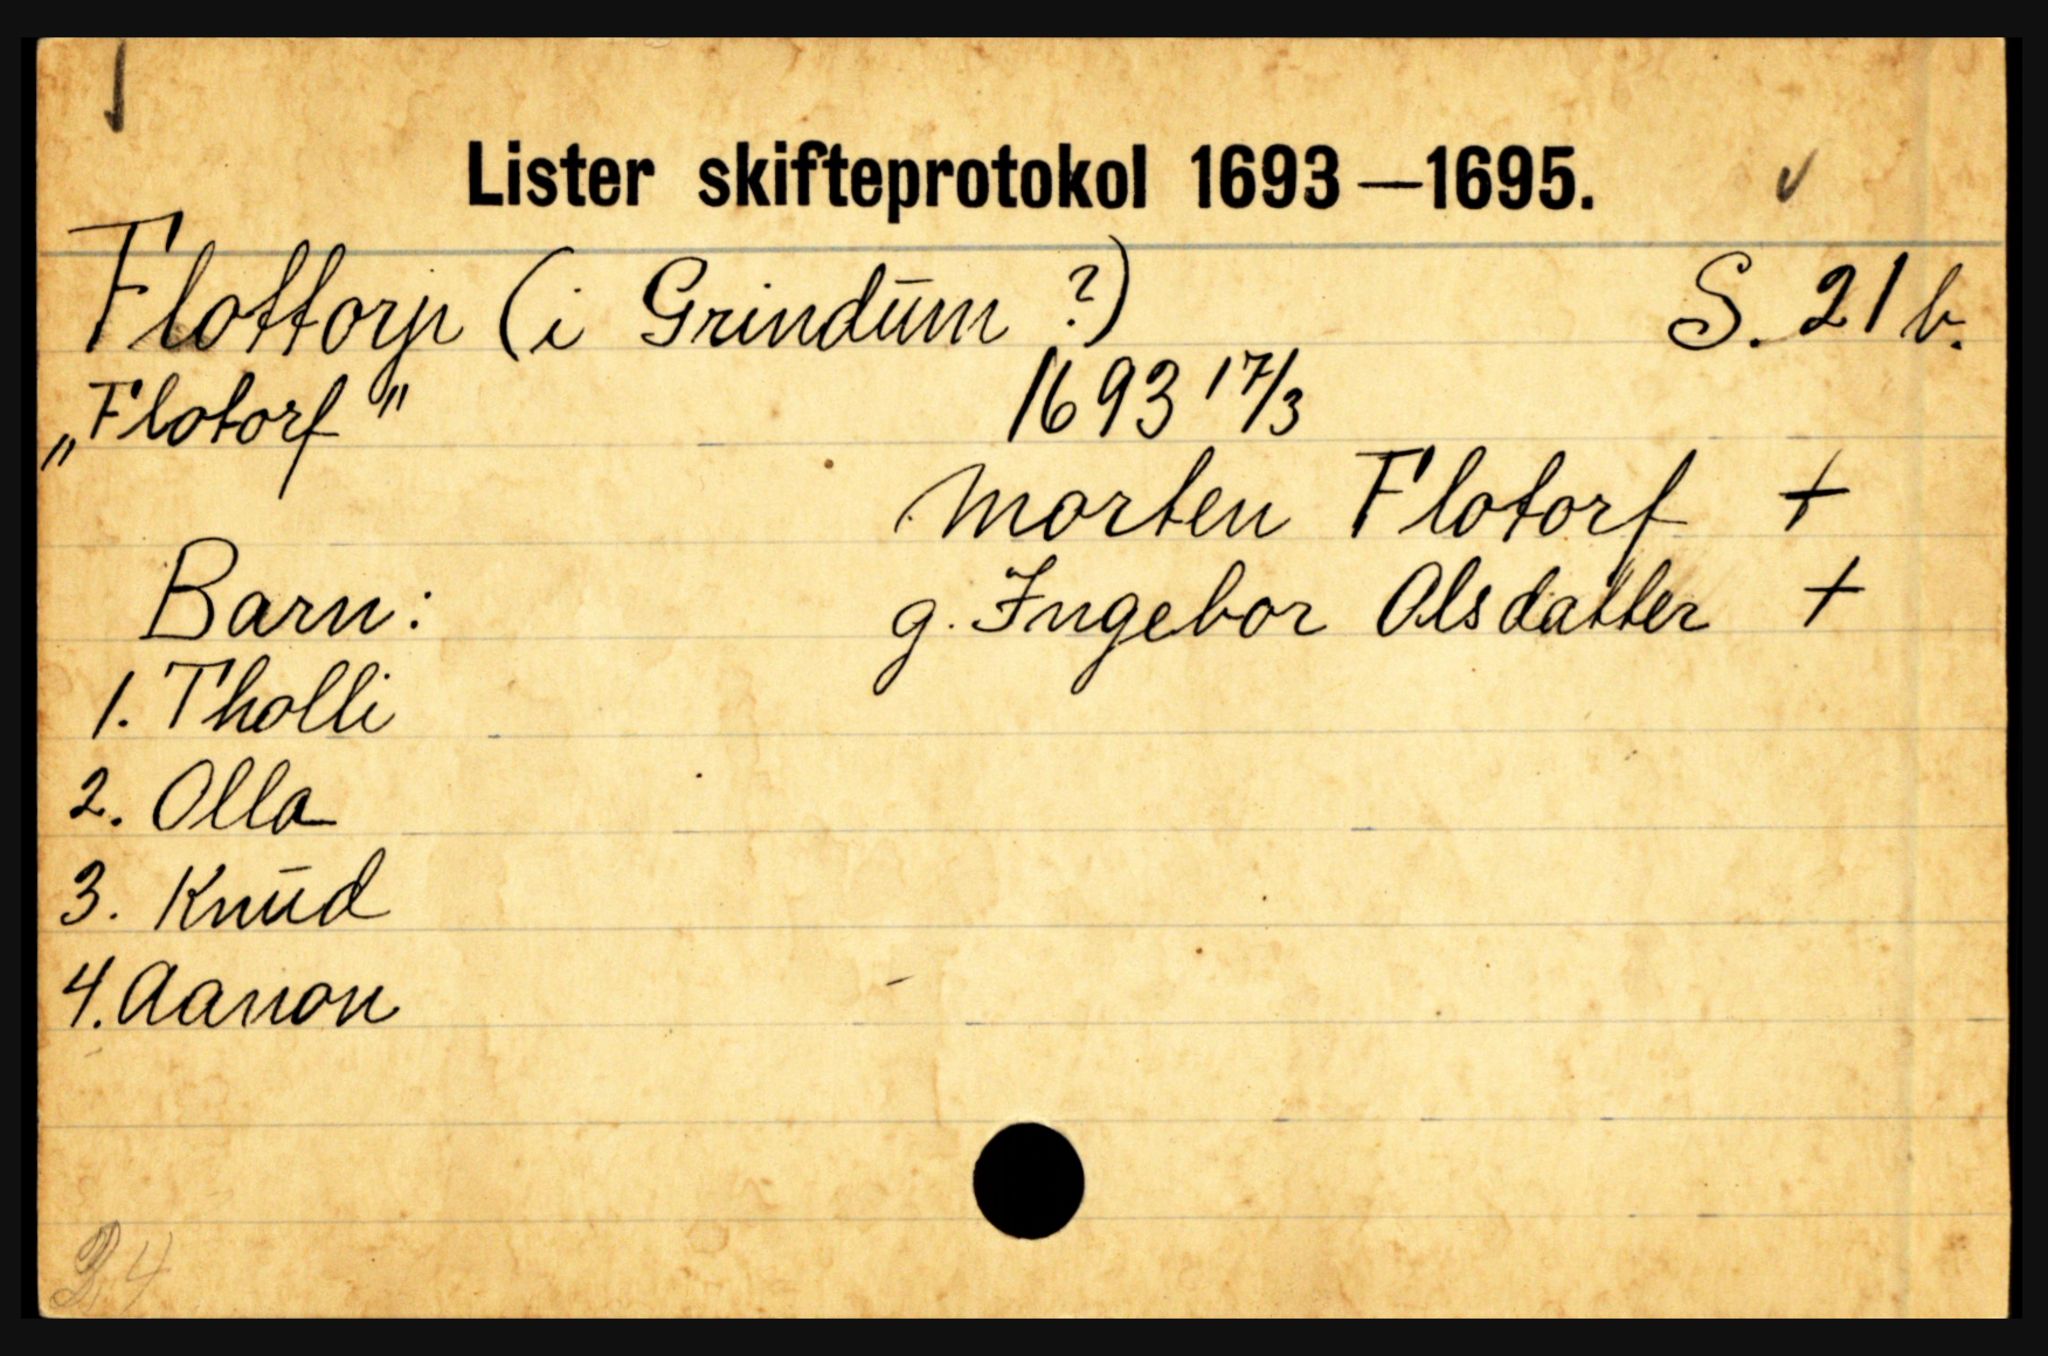 Lister skifteprotokol 1693—1695.
Flottorp (i Grindum ?) S. 21 b.
„Flotorf" 1693 17/3
Morten Flotorf +
Barn: g. Ingebor Olsdatter +
1. Tholli
2. Olla
3. Knud
4. Aanon